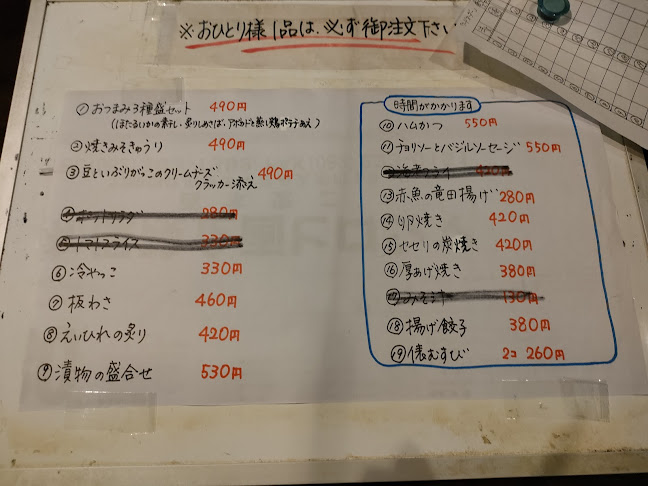 ※おひとり様1品は、必ず御注文下さい
① おつまみ3種盛セット 490円
② 焼きみそきゅうり 490円
③ 豆といぶりがっこのクリームチーズ
クラッカー添え 490円
④ ポテトサラダ 280円
⑤ トマトスライス 330円
⑥ 冷やっこ 330円
⑦ 板わさ 460円
⑧ えいひれの炙り 420円
⑨ 漬物の盛合せ 530円
時間がかかります
⑩ ハムかつ 550円
⑪ チョリソーとバジルソーセージ 550円
420円
⑬ 赤魚の竜田揚げ 280円
⑭ 卵焼き 420円
⑮ セセリの炭焼き 420円
⑯ 厚あげ焼き 380円
⑰ みそ汁 130円
⑱ 揚げ餃子 380円
⑲ 俵むすび 2コ 260円